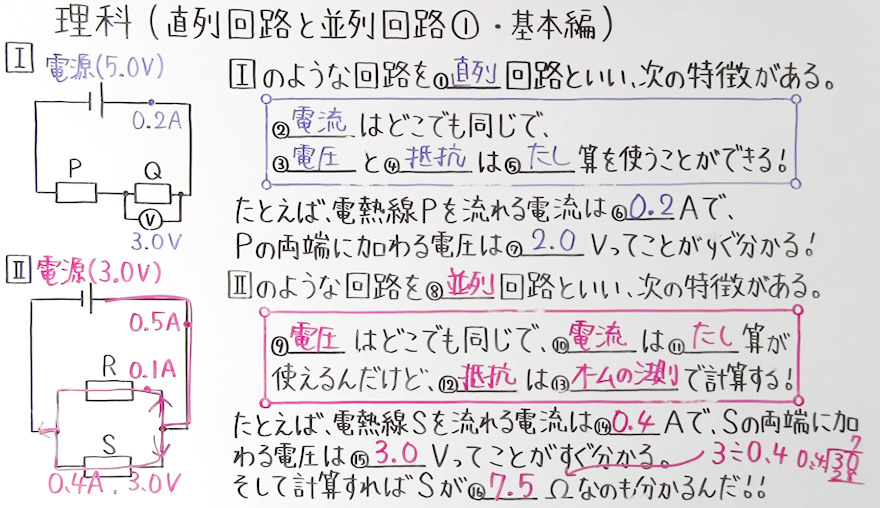 理科(直列回路と並列回路①・基本編)
Ⅰ 電源(5.0V)
0.2A
P
Q
V
3.0V
Ⅰのような回路を①直列回路といい、次の特徴がある。
②電流はどこでも同じで、
③電圧と④抵抗は⑤たし算を使うことができる!
たとえば、電熱線Pを流れる電流は⑥0.2Aで、
Pの両端に加わる電圧は⑦2.0Vってことがすぐ分かる!
Ⅱ 電源(3.0V)
0.5A
R 0.1A
S
0.4A、3.0V
Ⅱのような回路を⑧並列回路といい、次の特徴がある。
⑨電圧はどこでも同じで、⑩電流は⑪たし算が
使えるんだけど、⑫抵抗は⑬オームの法則で計算する!
たとえば、電熱線Sを流れる電流は⑭0.4Aで、Sの両端に加
わる電圧は⑮3.0Vってことがすぐ分かる。
そして計算すればSが⑯7.5Ωなのも分かるんだ!!
3÷0.4
7
0.4 30
28